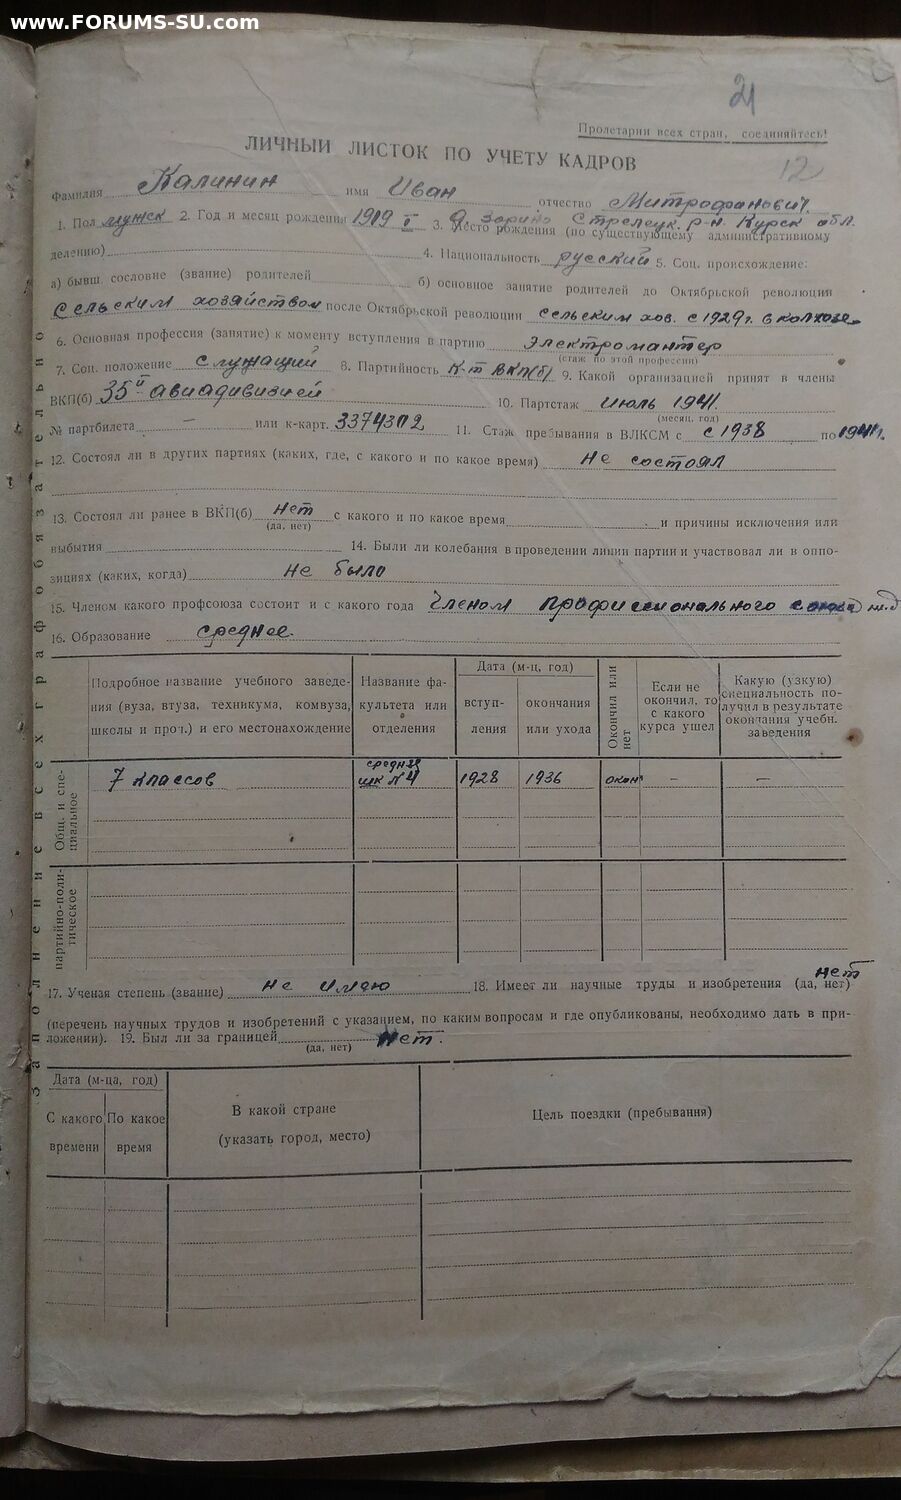 www.FORUMS-SU.com
21
Пролетарии всех стран, соединяйтесь!
ЛИЧНЫЙ ЛИСТОК ПО УЧЕТУ КАДРОВ
12
Фамилия Калинин имя Иван отчество Митрофанович
1. Пол мужск 2. Год и месяц рождения 1919 I 3. Место рождения (по существующему административному
д. Зорино Стрелецк. р-н Курск обл.
делению) 4. Национальность русский 5. Соц. происхождение:
а) бывш сословие (звание) родителей б) основное занятие родителей до Октябрьской революции
Сельским хозяйством после Октябрьской революции сельским хоз. с 1929г. в колхозе
6. Основная профессия (занятие) к моменту вступления в партию Электромантер
(стаж по этой профессии)
7. Соц. положение Служащий 8. Партийность К-т ВКП(б) 9. Какой организацией принят в члены
ВКП(б) 35й авиадивизией 10. Партстаж Июль 1941.
(месяц. год)
№ партбилета — или к-карт. 3374302 11. Стаж пребывания в ВЛКСМ с с 1938 по 1941г.
12. Состоял ли в других партиях (каких, где, с какого и по какое время) Не состоял
13. Состоял ли ранее в ВКП(б) Нет с какого и по какое время и причины исключения или
(да, нет)
выбытия 14. Были ли колебания в проведении линии партии и участвовал ли в оппо-
зициях (каких, когда) Не было
15. Членом какого профсоюза состоит и с какого года Членом профиссионального союза
16. Образование среднее.
Подробное название учебного заведе-
ния (вуза, втуза, техникума, комвуза,
школы и проч.) и его местонахождение
Название фа-
культета или
отделения
Дата (м-ц, год)
вступ-
ления
окончания
или ухода
Окончил или
нет
Если не
окончил, то
с какого
курса ушел
Какую (узкую)
специальность по-
лучил в результате
окончания учебн.
заведения
Общ. и спе-
циальное
7 классов средняя шк №4 1928 1936 окон — —
партийно-поли-
тическое
17. Ученая степень (звание) не имею 18. Имеет ли научные труды и изобретения (да, нет) нет
(перечень научных трудов и изобретений с указанием, по каким вопросам и где опубликованы, необходимо дать в при-
ложении). 19. Был ли за границей нет.
(да, нет)
Дата (м-ца, год)
С какого
времени
По какое
время
В какой стране
(указать город, место)
Цель поездки (пребывания)
Заполнение всех граф обязательно